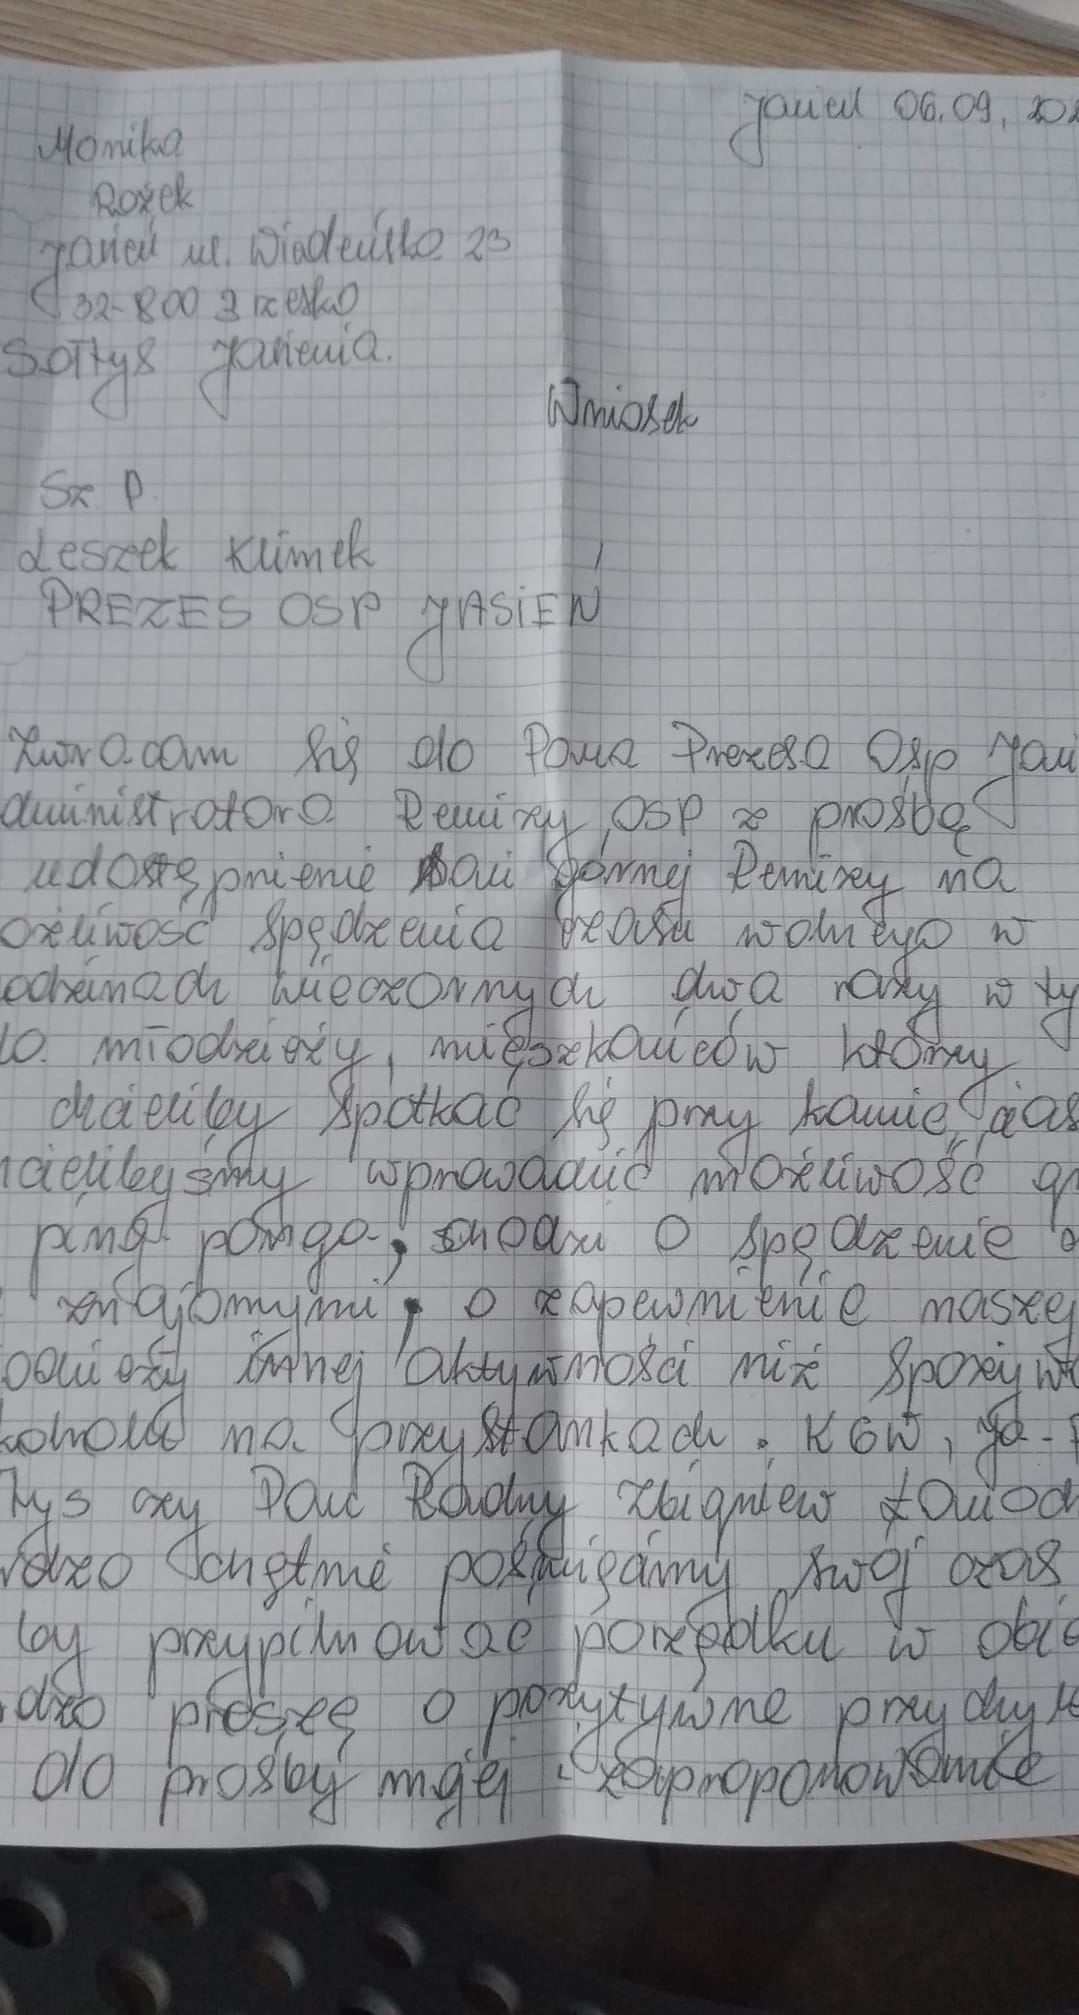 Jasień 06.09, 202
Monika
Rożek
Jasień ul. Wiadeńska 23
32-800 Brzesko
Sołtys Jasienia.
Wniosek
Sz P.
Leszek Klimek
PREZES OSP JASIEŃ
Zwracam się do Pana Prezesa Osp Jasi
dministratora Remizy OSP z prośbą
udostępnienie sali górnej Remizy na
ożliwość spędzenia czasu wolnego w
odzinach wieczornych dwa razy w ty
la młodzieży, mieszkańców którzy
chcieliby spotkać się przy kawie, cias
cielibyśmy wprowadzić możliwość gr
ping ponga, chodzi o spędzenie
znajomymi, o zapewnienie naszej
odzieży innej aktywności niż spożyw
koholu na przystankach. KGW, ja
tys czy Pan Radny Zbigniew
rdzo chętnie poświęcimy swój czas
by przypilnować porządku w obie
rdzo proszę o pozytywne przychyle
do prośby mojej i zaproponowanie